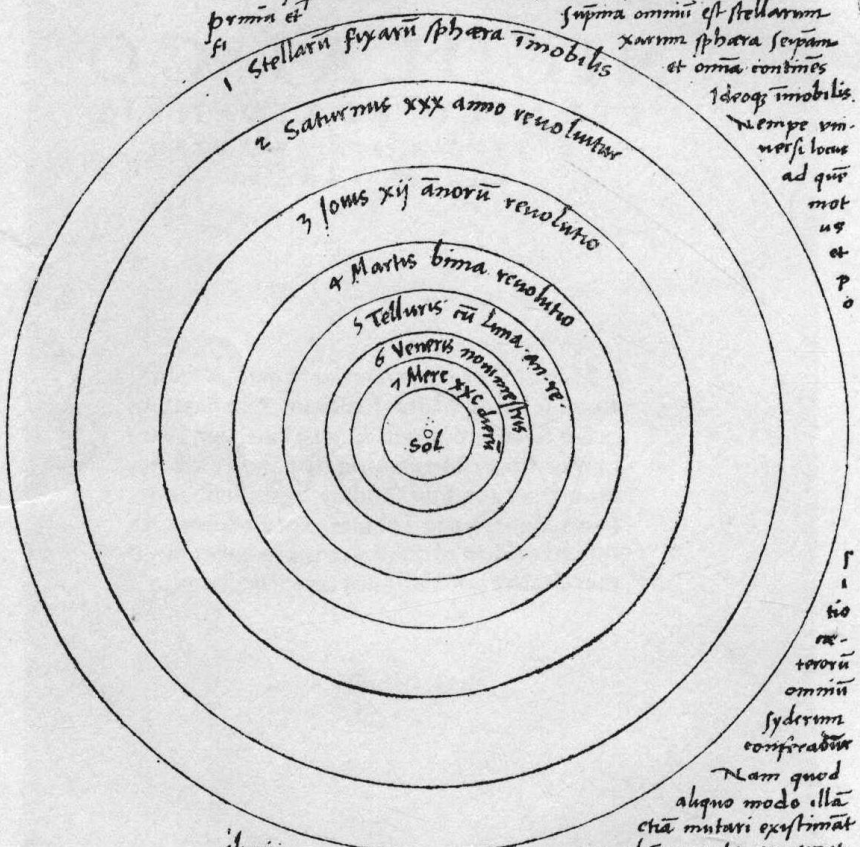 prima et
fi
sup̄ma omniū est stellarum
xarum sphæra seip̄am
et om̄ia continēs
Ideoqȝ īmobilis.
Nempe vni-
uersi locus
ad quē
mot
us
et
p
o
1 Stellarū fixarū sphæra īmobilis
2 Saturnus xxx anno reuoluitur
3 Jouis xij ānorū reuolutio
4 Martis bima reuolutio
5 Telluris cū Luna an. re.
6 Veneris nonimestris
7 Merc xxc dierū
Sol
s
i
tio
cæ-
terorū
omniū
syderum
conferatur
Nam quod
aliquo modo illā
etiā mutari existimāt